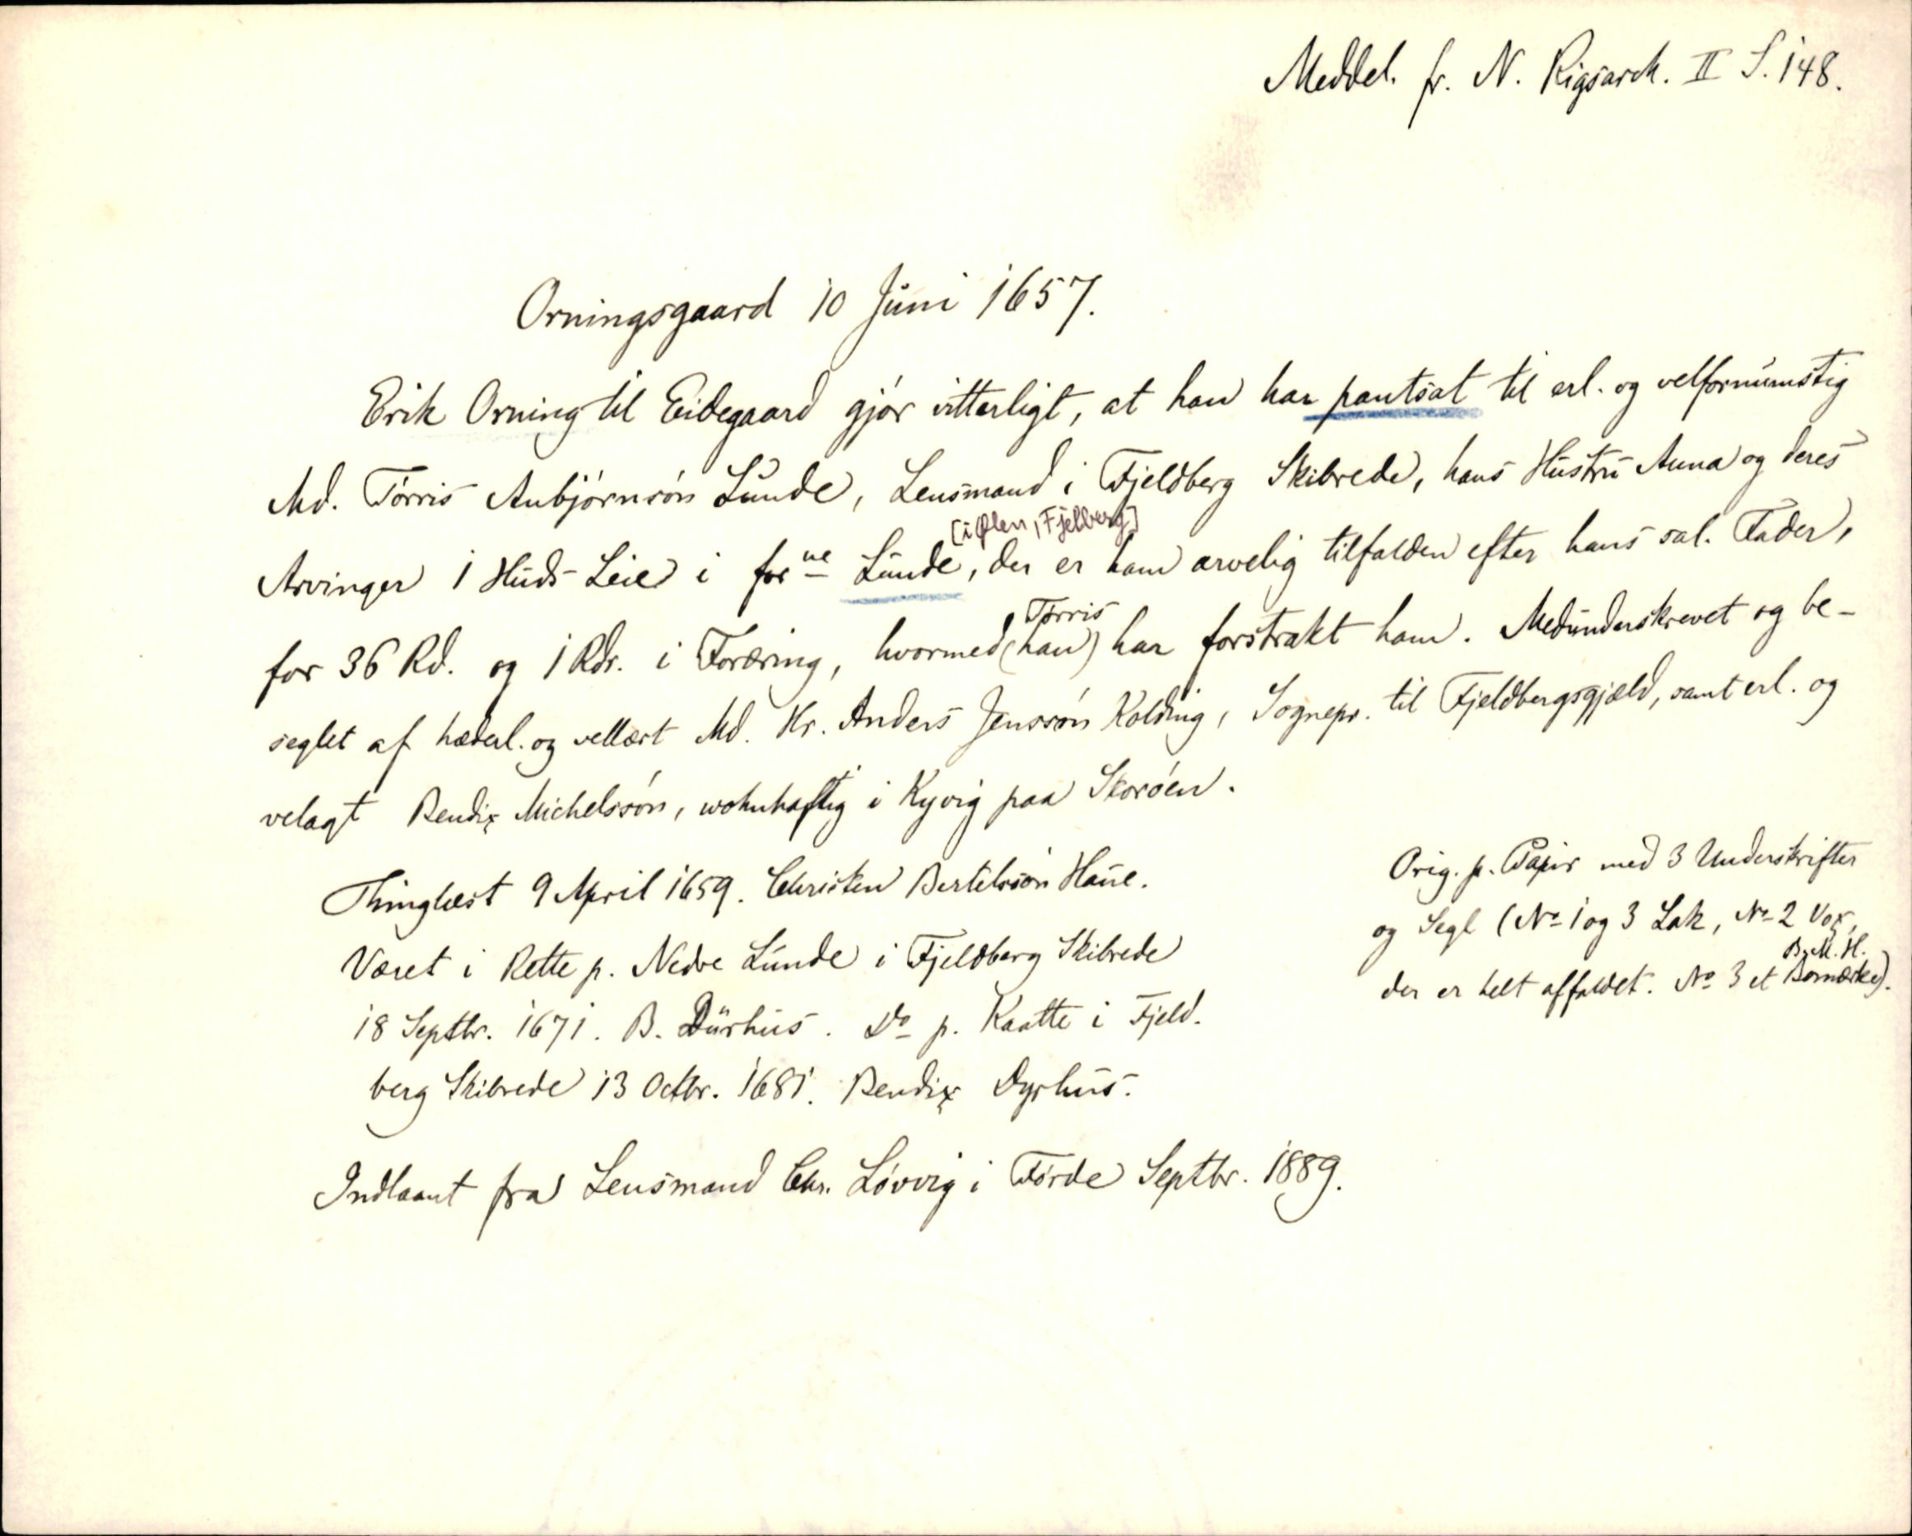 Meddel. fr. N. Rigsarck. II S. 148.
Orningsgaard 10 Juni 1657.
Erik Orning til Eidegaard gjør vitterligt, at han har pantsat til erl. og velfornumstig
Md. Tørris Anbjørnsøn Lunde, Lensmand i Fjeldberg Skibrede, hans Hustru Anna og deres
[i Ølen, Fjelberg]
Arvinger 1 Huds Leie i forne Lunde, der er ham arvelig tilfalden efter hans sal. Fader,
Tørris
for 36 Rd. og 1 Rdr. i Foræring, hvormed (han) har forstrakt ham. Medunderskrevet og be-
seglet af hæderl. og vellært Md. Hr. Anders Jenssøn Kolding, Sognepr. til Fjeldbergsgjæld, samt erl. og
velagt Bendix Michelssøn, wohnhaftig i Kyvig paa Skorøen.
Thinglæst 9 April 1659. Christen Bertelssøn Haue.
Været i Rette p. Nedre Lunde i Fjeldberg Skibrede
18 Septbr. 1671. B. Dürhus. Do p. Kaatte i Fjeld-
berg Skibrede 13 Octbr. 1681. Bendix Dyrhus.
Orig. p. Papir med 3 Underskrifter
og Segl (No 1 og 3 Lak, No 2 Vox,
B. M. H.
der er helt affaldet. No 3 et Bomærke).
Indlaant fra Lensmand Chr. Løvvig i Førde Septbr. 1889.